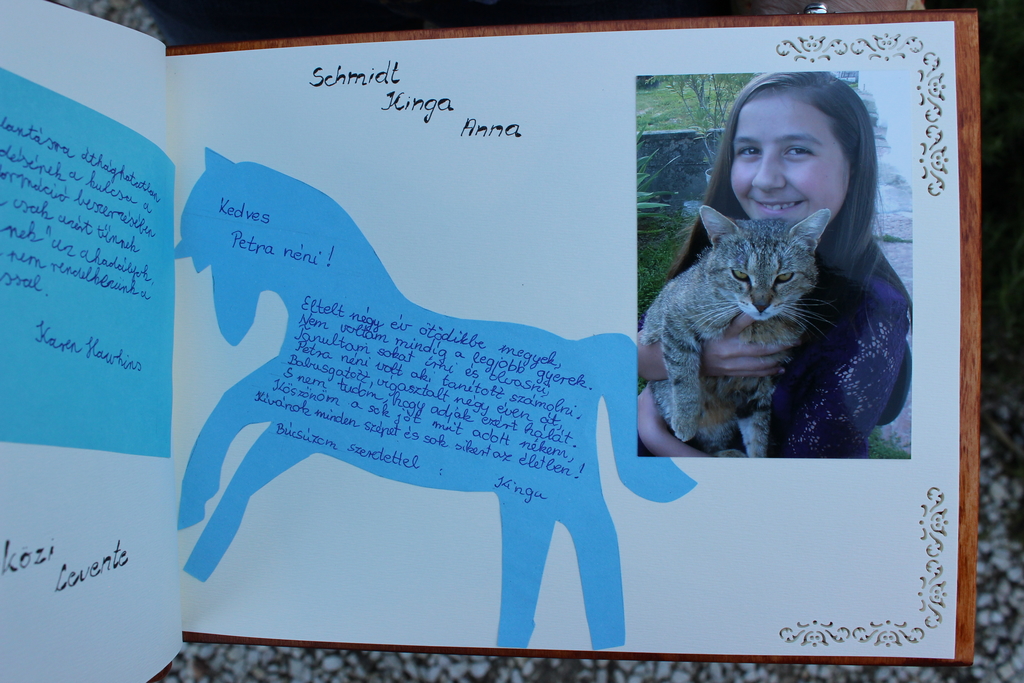 lantásra áthághatatlan
désének a kulcsa a
formáció beszerzésében
csak azért tűnnek
nek az akadályok,
nem rendelkezünk a
ssal.
Karen Hawkins
közi
Levente
Schmidt
Kinga
Anna
Kedves
Petra néni!
Eltelt négy év ötödikbe megyek,
Nem voltam mindig a legjobb gyerek.
Tanultam sokat írni és olvasni,
Petra néni volt aki tanított számolni.
Babusgatott, vigasztalt négy éven át,
S nem tudom, hogy adjak ezért hálát.
Köszönöm a sok jót mit adott nékem,
Kívánok minden szépet és sok sikert az életben!
Búcsúzom szeretettel :
Kinga